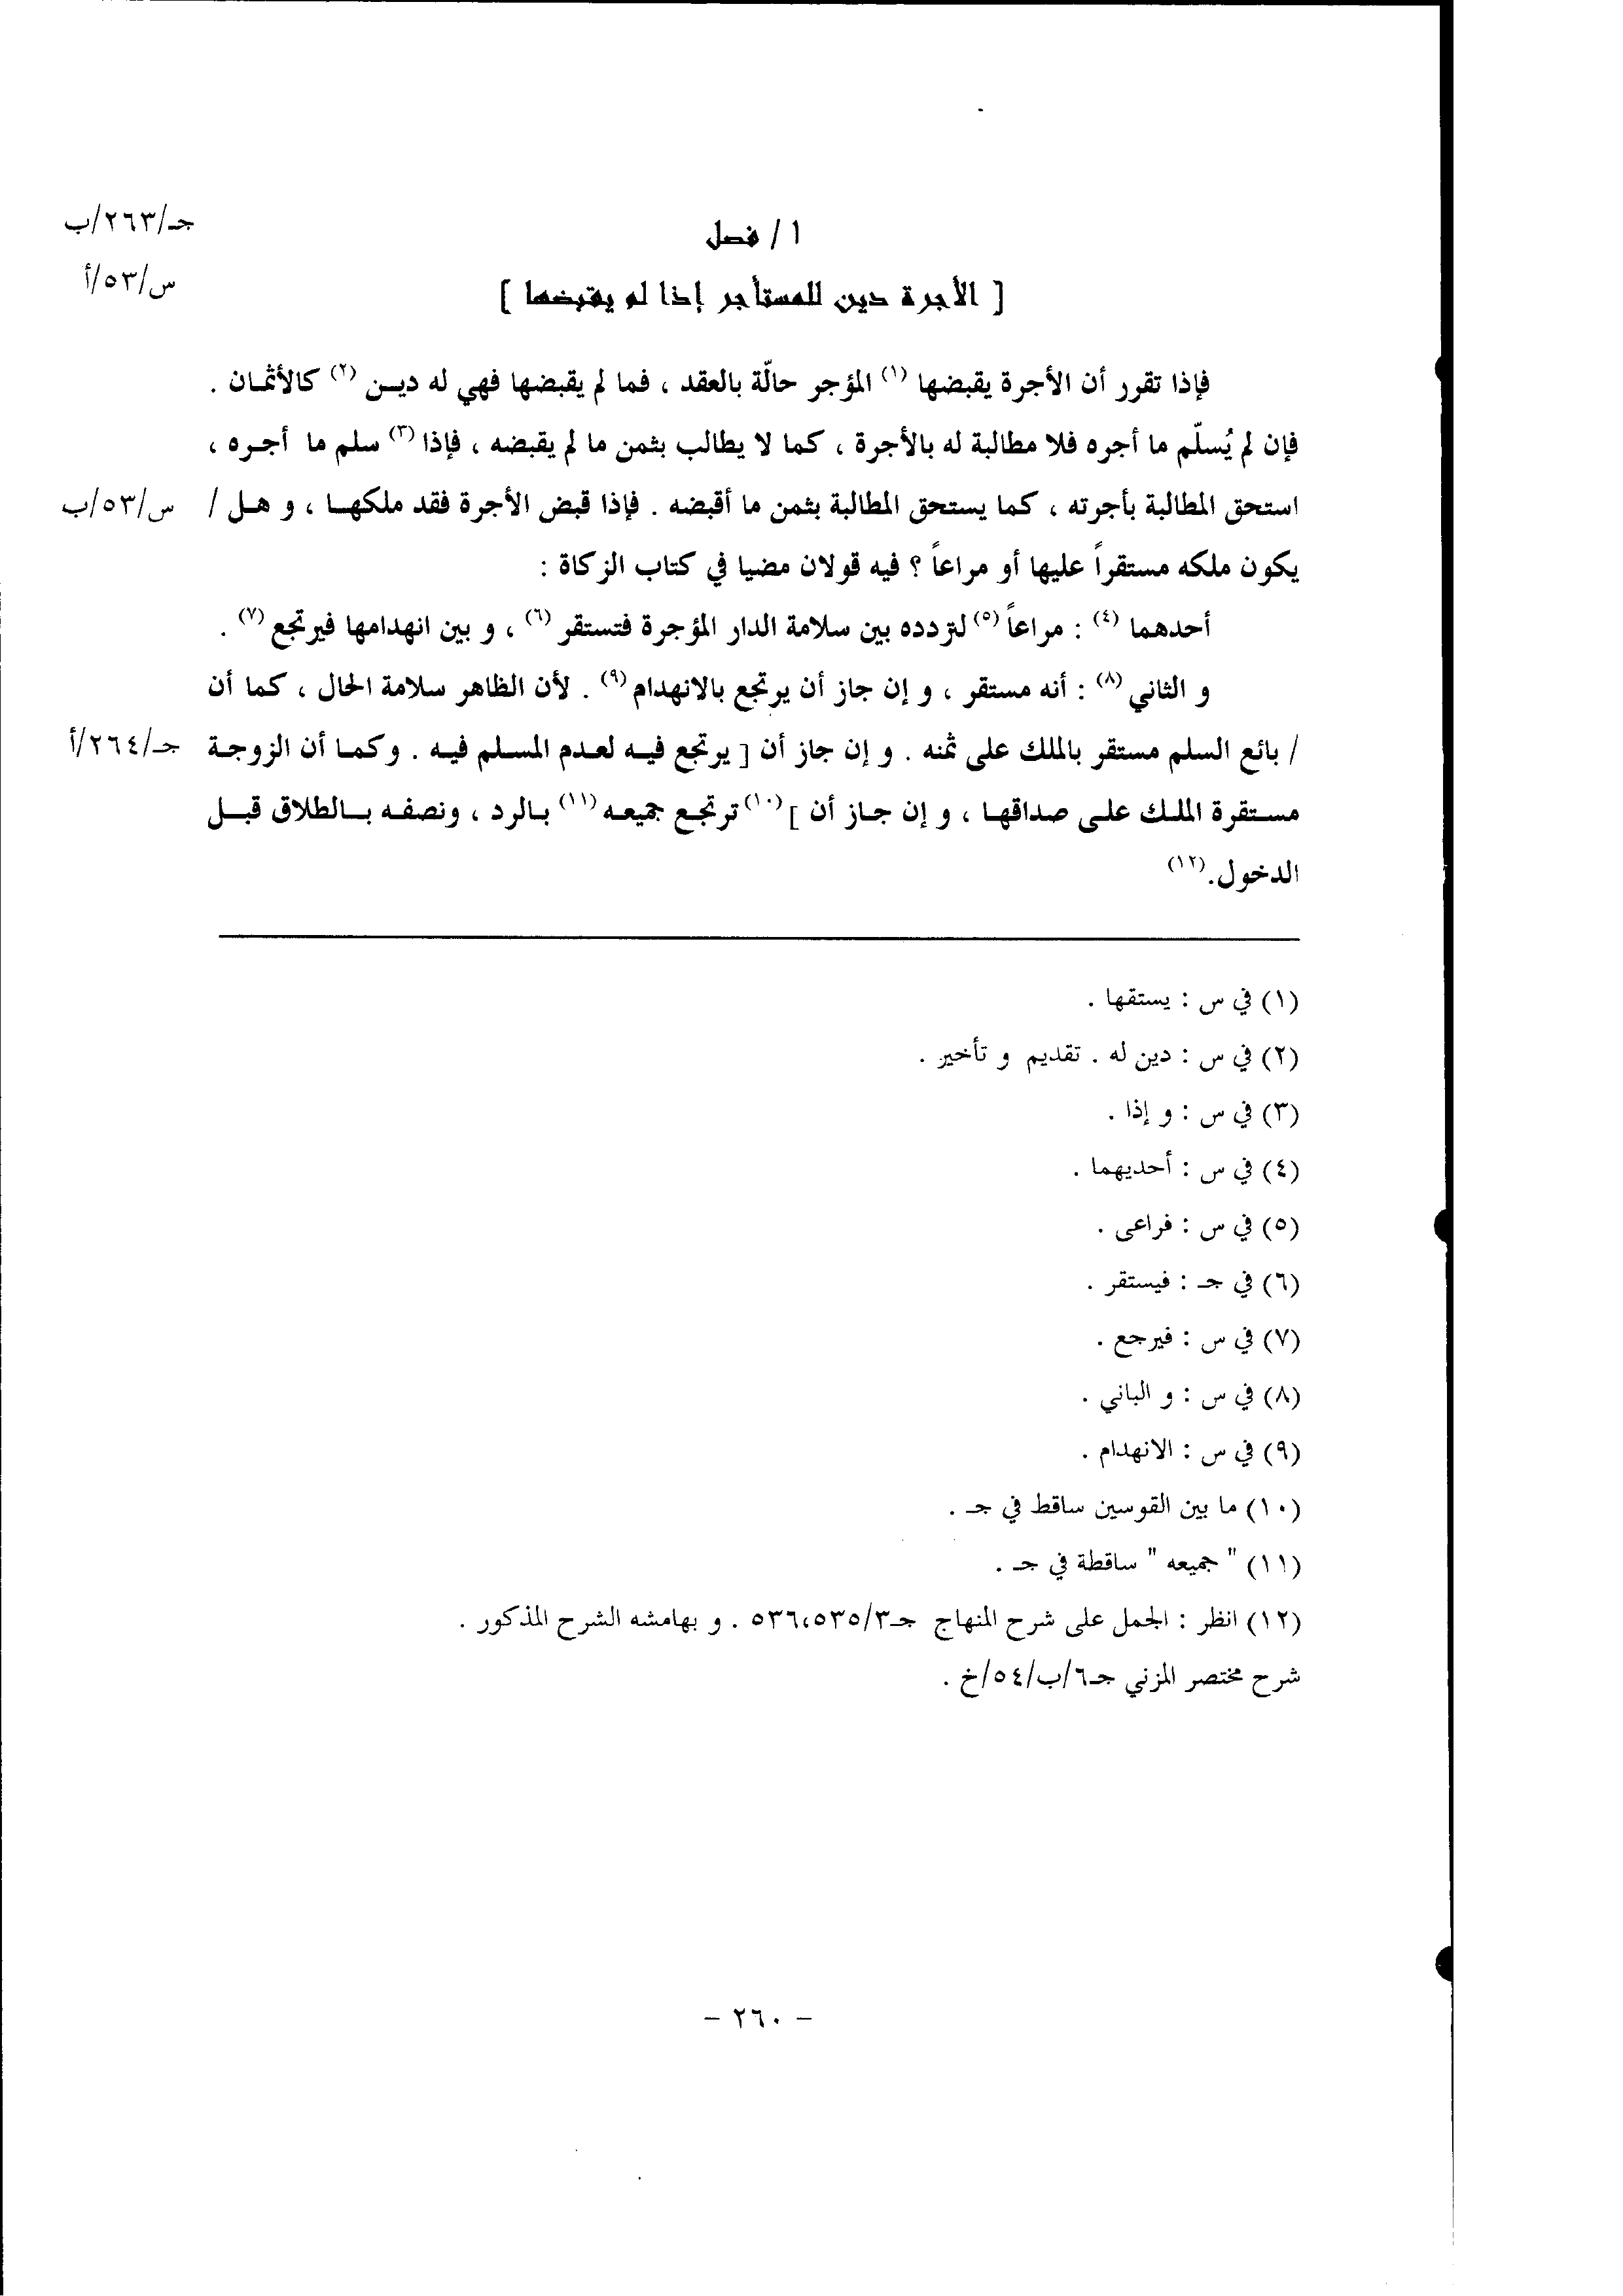 جـ/٢٦٣/ب
١ / فصل
س/٥٣/أ
[ الأجرة دين للمستأجر إذا لم يقبضها ]
فإذا تقرر أن الأجرة يقبضها (١) المؤجر حالّة بالعقد ، فما لم يقبضها فهي له ديـن (٢) كالأثمـان .
فإن لم يُسلّم ما أجره فلا مطالبة له بالأجرة ، كما لا يطالب بثمن ما لم يقبضه ، فإذا (٣) سلم ما أجـره ،
استحق المطالبة بأجرته ، كما يستحق المطالبة بثمن ما أقبضه . فإذا قبض الأجرة فقد ملكهـا ، و هـل / س/٥٣/ب
يكون ملكه مستقراً عليها أو مراعاً ؟ فيه قولان مضيا في كتاب الزكاة :
أحدهما (٤) : مراعاً (٥) لتردده بين سلامة الدار المؤجرة فتستقر (٦) ، و بين انهدامها فيرتجع (٧) .
و الثاني (٨) : أنه مستقر ، و إن جاز أن يرتجع بالانهدام (٩) . لأن الظاهر سلامة الحال ، كما أن
/ بائع السلم مستقر بالملك على ثمنه . و إن جاز أن [ يرتجع فيـه لعـدم المسـلم فيـه . وكمـا أن الزوجـة جـ/٢٦٤/أ
مسـتقرة الملـك علـى صداقهـا ، و إن جـاز أن ] (١٠) ترتجـع جميعـه (١١) بـالرد ، ونصفـه بـالطلاق قبـل
الدخول. (١٢)
(١) في س : يستقها .
(٢) في س : دين له . تقديم و تأخير .
(٣) في س : و إذا .
(٤) في س : أحديهما .
(٥) في س : فراعى .
(٦) في جـ : فيستقر .
(٧) في س : فيرجع .
(٨) في س : و الباني .
(٩) في س : الانهدام .
(١٠) ما بين القوسين ساقط في جـ .
(١١) " جميعه " ساقطة في جـ .
(١٢) انظر : الجمل على شرح المنهاج جـ٥٣٦،٥٣٥/٣ . و بهامشه الشرح المذكور .
شرح مختصر المزني جـ٦/ب/٥٤/خ .
– ٢٦٠ –